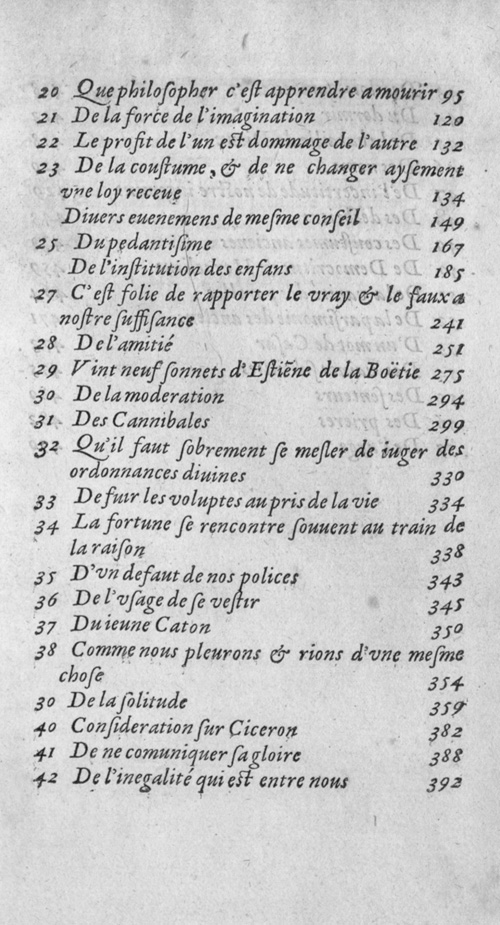 20 Que philoſopher c'eſt apprendre a mourir 95
21 De la force de l'imagination 120
22 Le profit de l'un eſt dommage de l'autre 132
23 De la couſtume, & de ne changer ayſement
vne loy receue 134
Diuers euenemens de meſme conſeil 149
25 Du pedantiſme 167
De l'inſtitution des enfans 185
27 C'eſt folie de rapporter le vray & le faux a
noſtre ſuffiſance 241
28 De l'amitié 251
29 Vint neuf ſonnets d'Eſtiēne de la Boëtie 275
30 De la moderation 294
31. Des Cannibales 299
32 Qu'il faut ſobrement ſe meſler de iuger des
ordonnances diuines 330
33 De fuir les voluptes au pris de la vie 334
34 La fortune ſe rencontre ſouuent au train de
la raiſon 338
35 D'vn defaut de nos polices 343
36 De l'vſage de ſe veſtir 345
37 Du ieune Caton 350
38 Comme nous pleurons & rions d'vne meſme
choſe 354
30 De la ſolitude 359
40 Conſideration ſur Ciceron 382
41 De ne comuniquer ſa gloire 388
42 De l'inegalité qui eſt entre nous 392